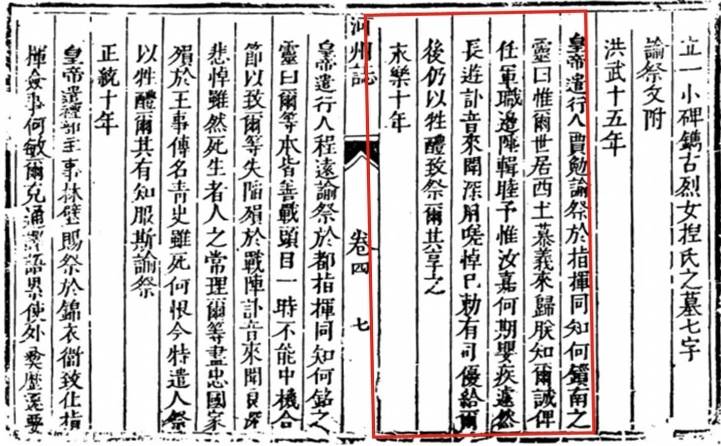 立一小碑鐫古烈女揑氏之墓七字
諭祭文附
洪武十五年
皇帝遣行人賈勉諭祭於指揮同知何鎖南之
靈曰惟爾世居西土慕義來歸朕知爾誠俾
任軍職邊陲輯睦予惟汝嘉何期嬰疾遽然
長逝訃音來聞深用嗟悼已勅有司優給爾
後仍以牲醴致祭爾其享之
永樂十年
河州誌 卷四 七
皇帝遣行人程遠諭祭於都指揮同知何銘之
靈曰爾等本皆善戰頭目一時不能中機合
節以致爾等失陷殞於戰陣訃音來聞良深
悲悼雖然死生者人之常理爾等盡忠國家
殞於王事傳名青史雖死何恨今特遣人祭
以牲醴爾其有知服斯諭祭
正統十年
皇帝遣禮部主事林璧賜祭於錦衣衛致仕指
揮僉事何敏爾克通譯語累使外夷歷